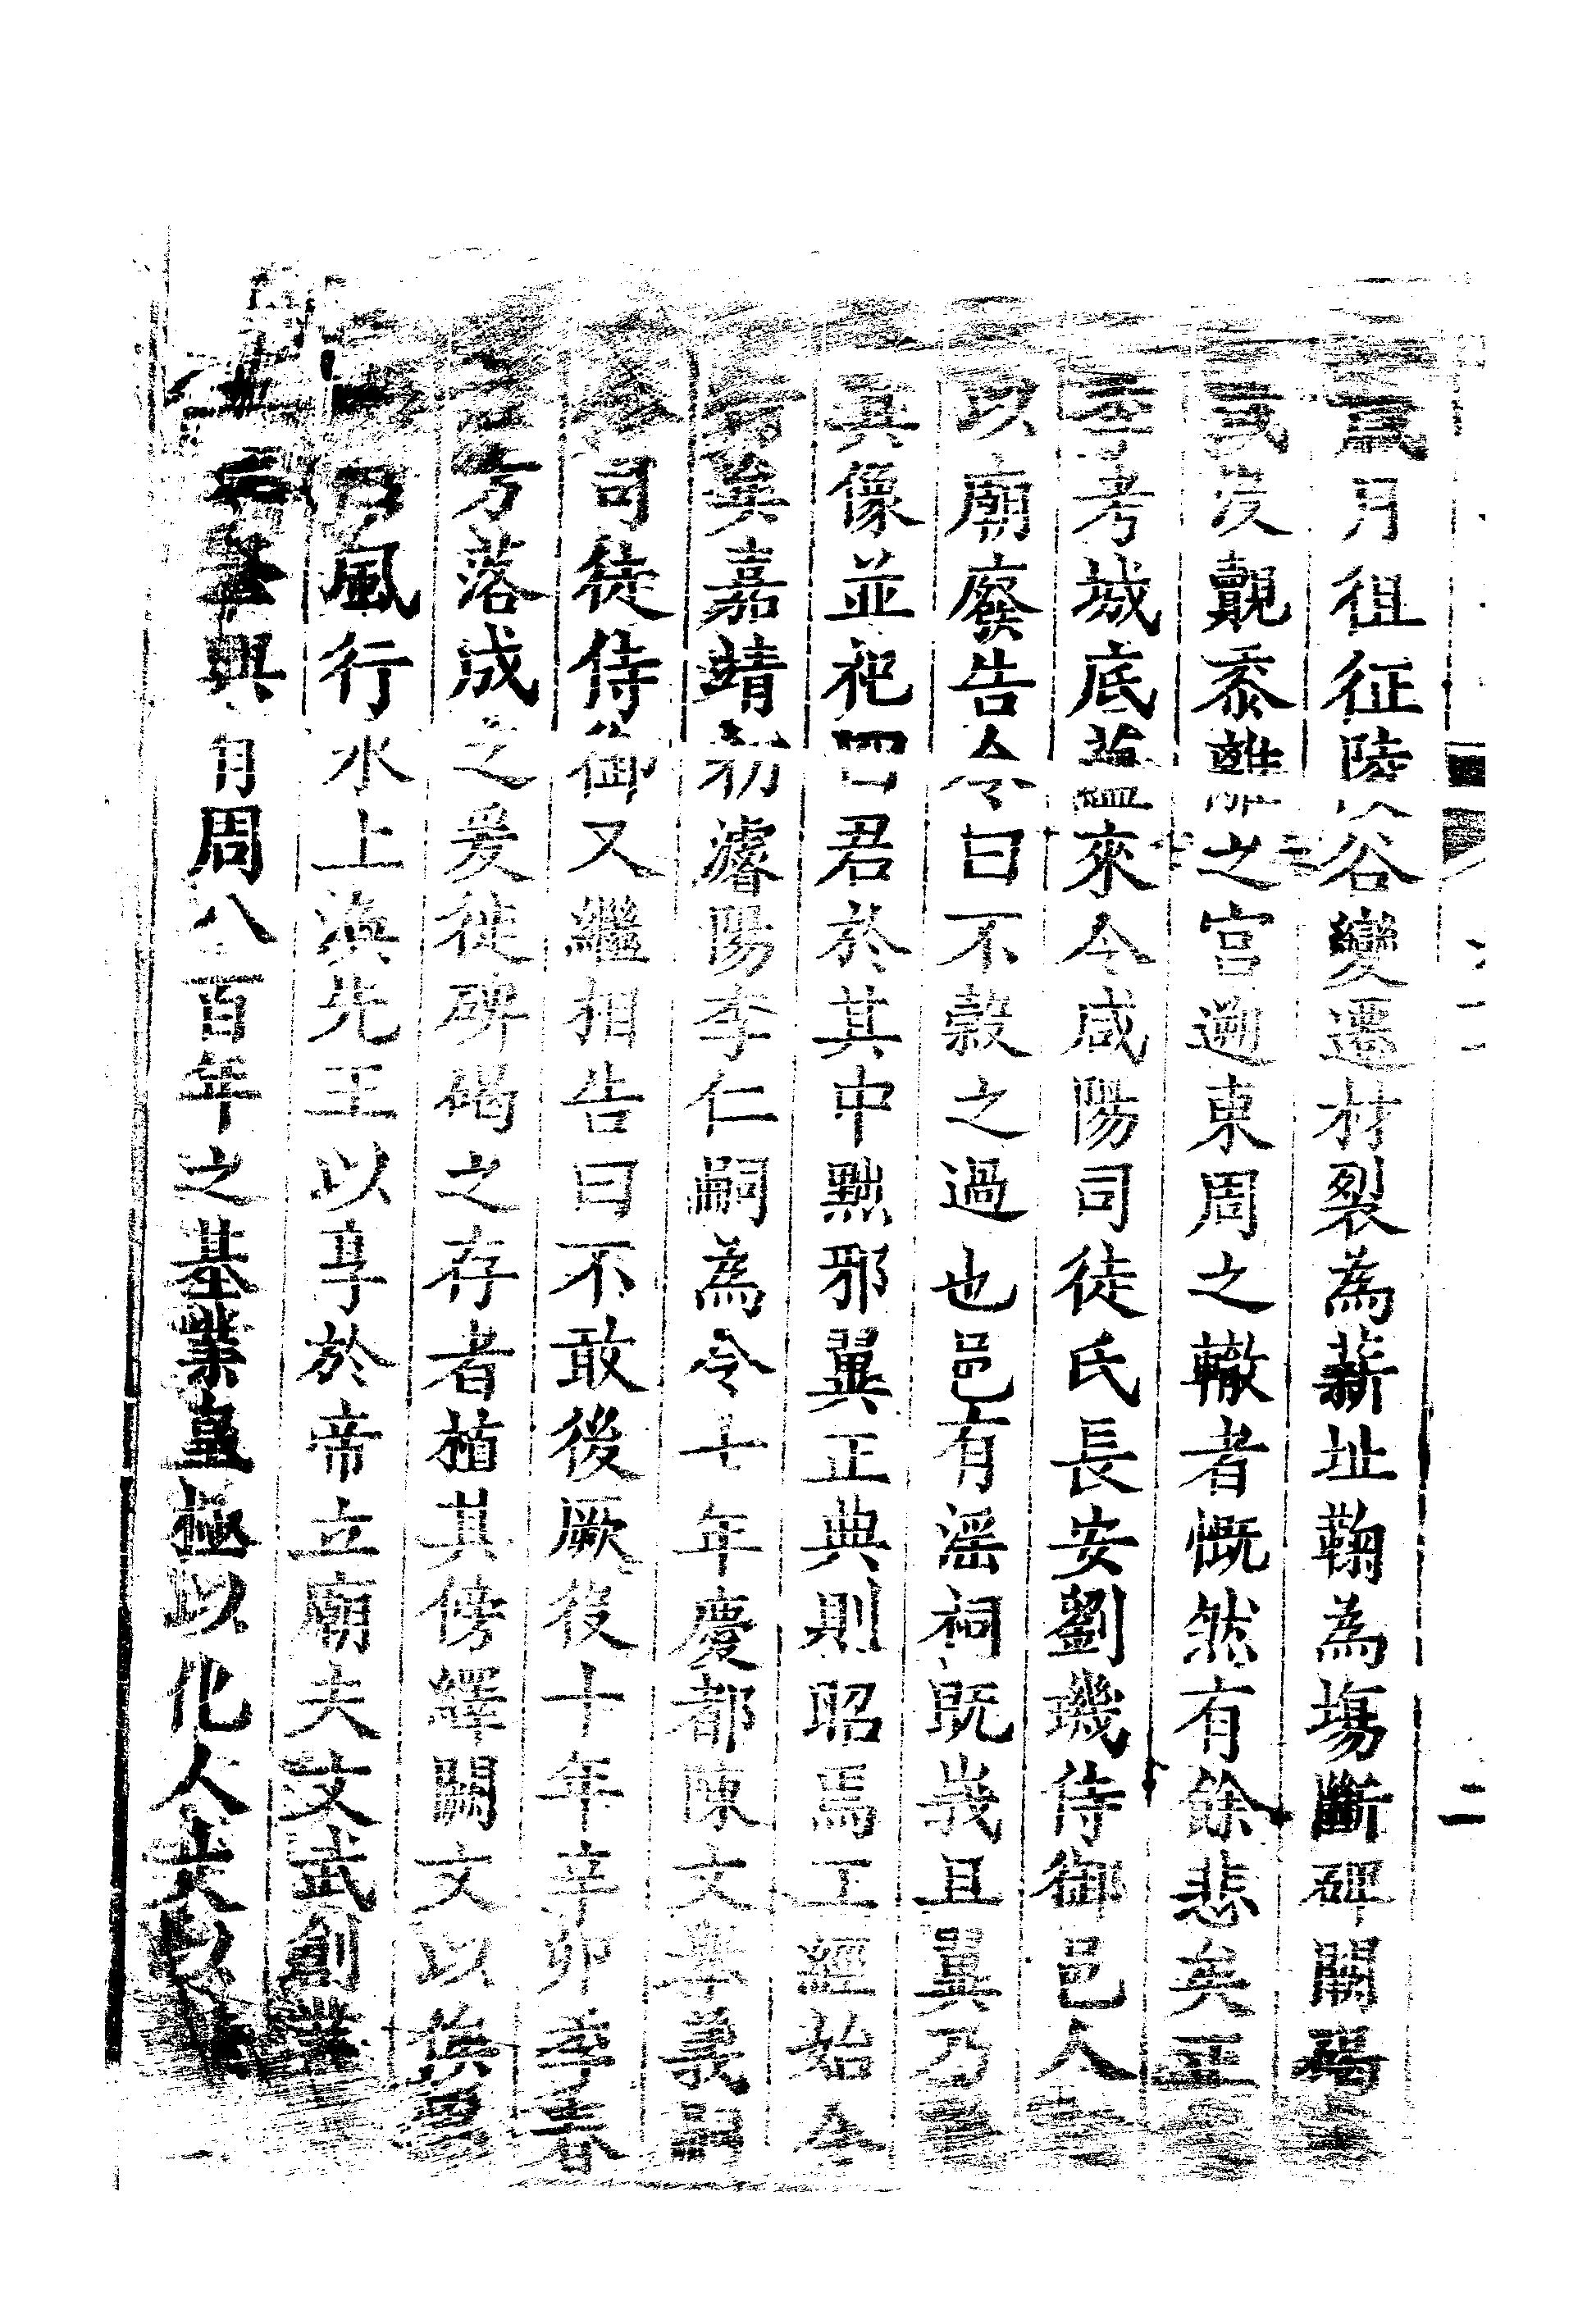 月徂征陵谷變遷材裂為薪址鞠為塲斷碑闕碣
没覩黍離之宫遡東周之轍者慨然有餘悲矣正
考城底藎來今咸陽司徒氏長安劉璣侍御邑人
以廟廢告令曰不穀之過也邑有滛祠既峩且翼乃
其像並祀四君於其中黜邪翼正典則昭焉工經始令
矣嘉靖初濬陽李仁嗣為令七年慶都陳文舉義嗣
司徒侍御又繼相告曰不敢後厥役十年辛卯季春
方落成之爰徙碑碣之存者植其傍繹闕文以俟焉
曰風行水上渙先王以享於帝立廟夫文武創業
興有周八百年之基業皇極以化人